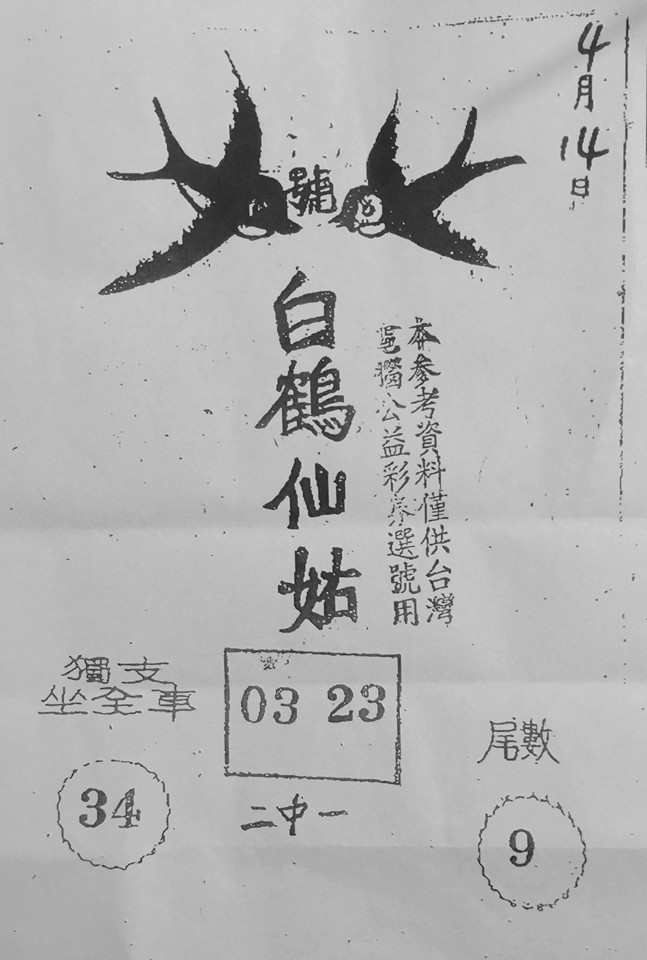 4月14日
號
白鶴仙姑
本參考資料僅供台灣
公益彩券選號用
獨支
坐全車
34
03 23
二中一
尾數
9